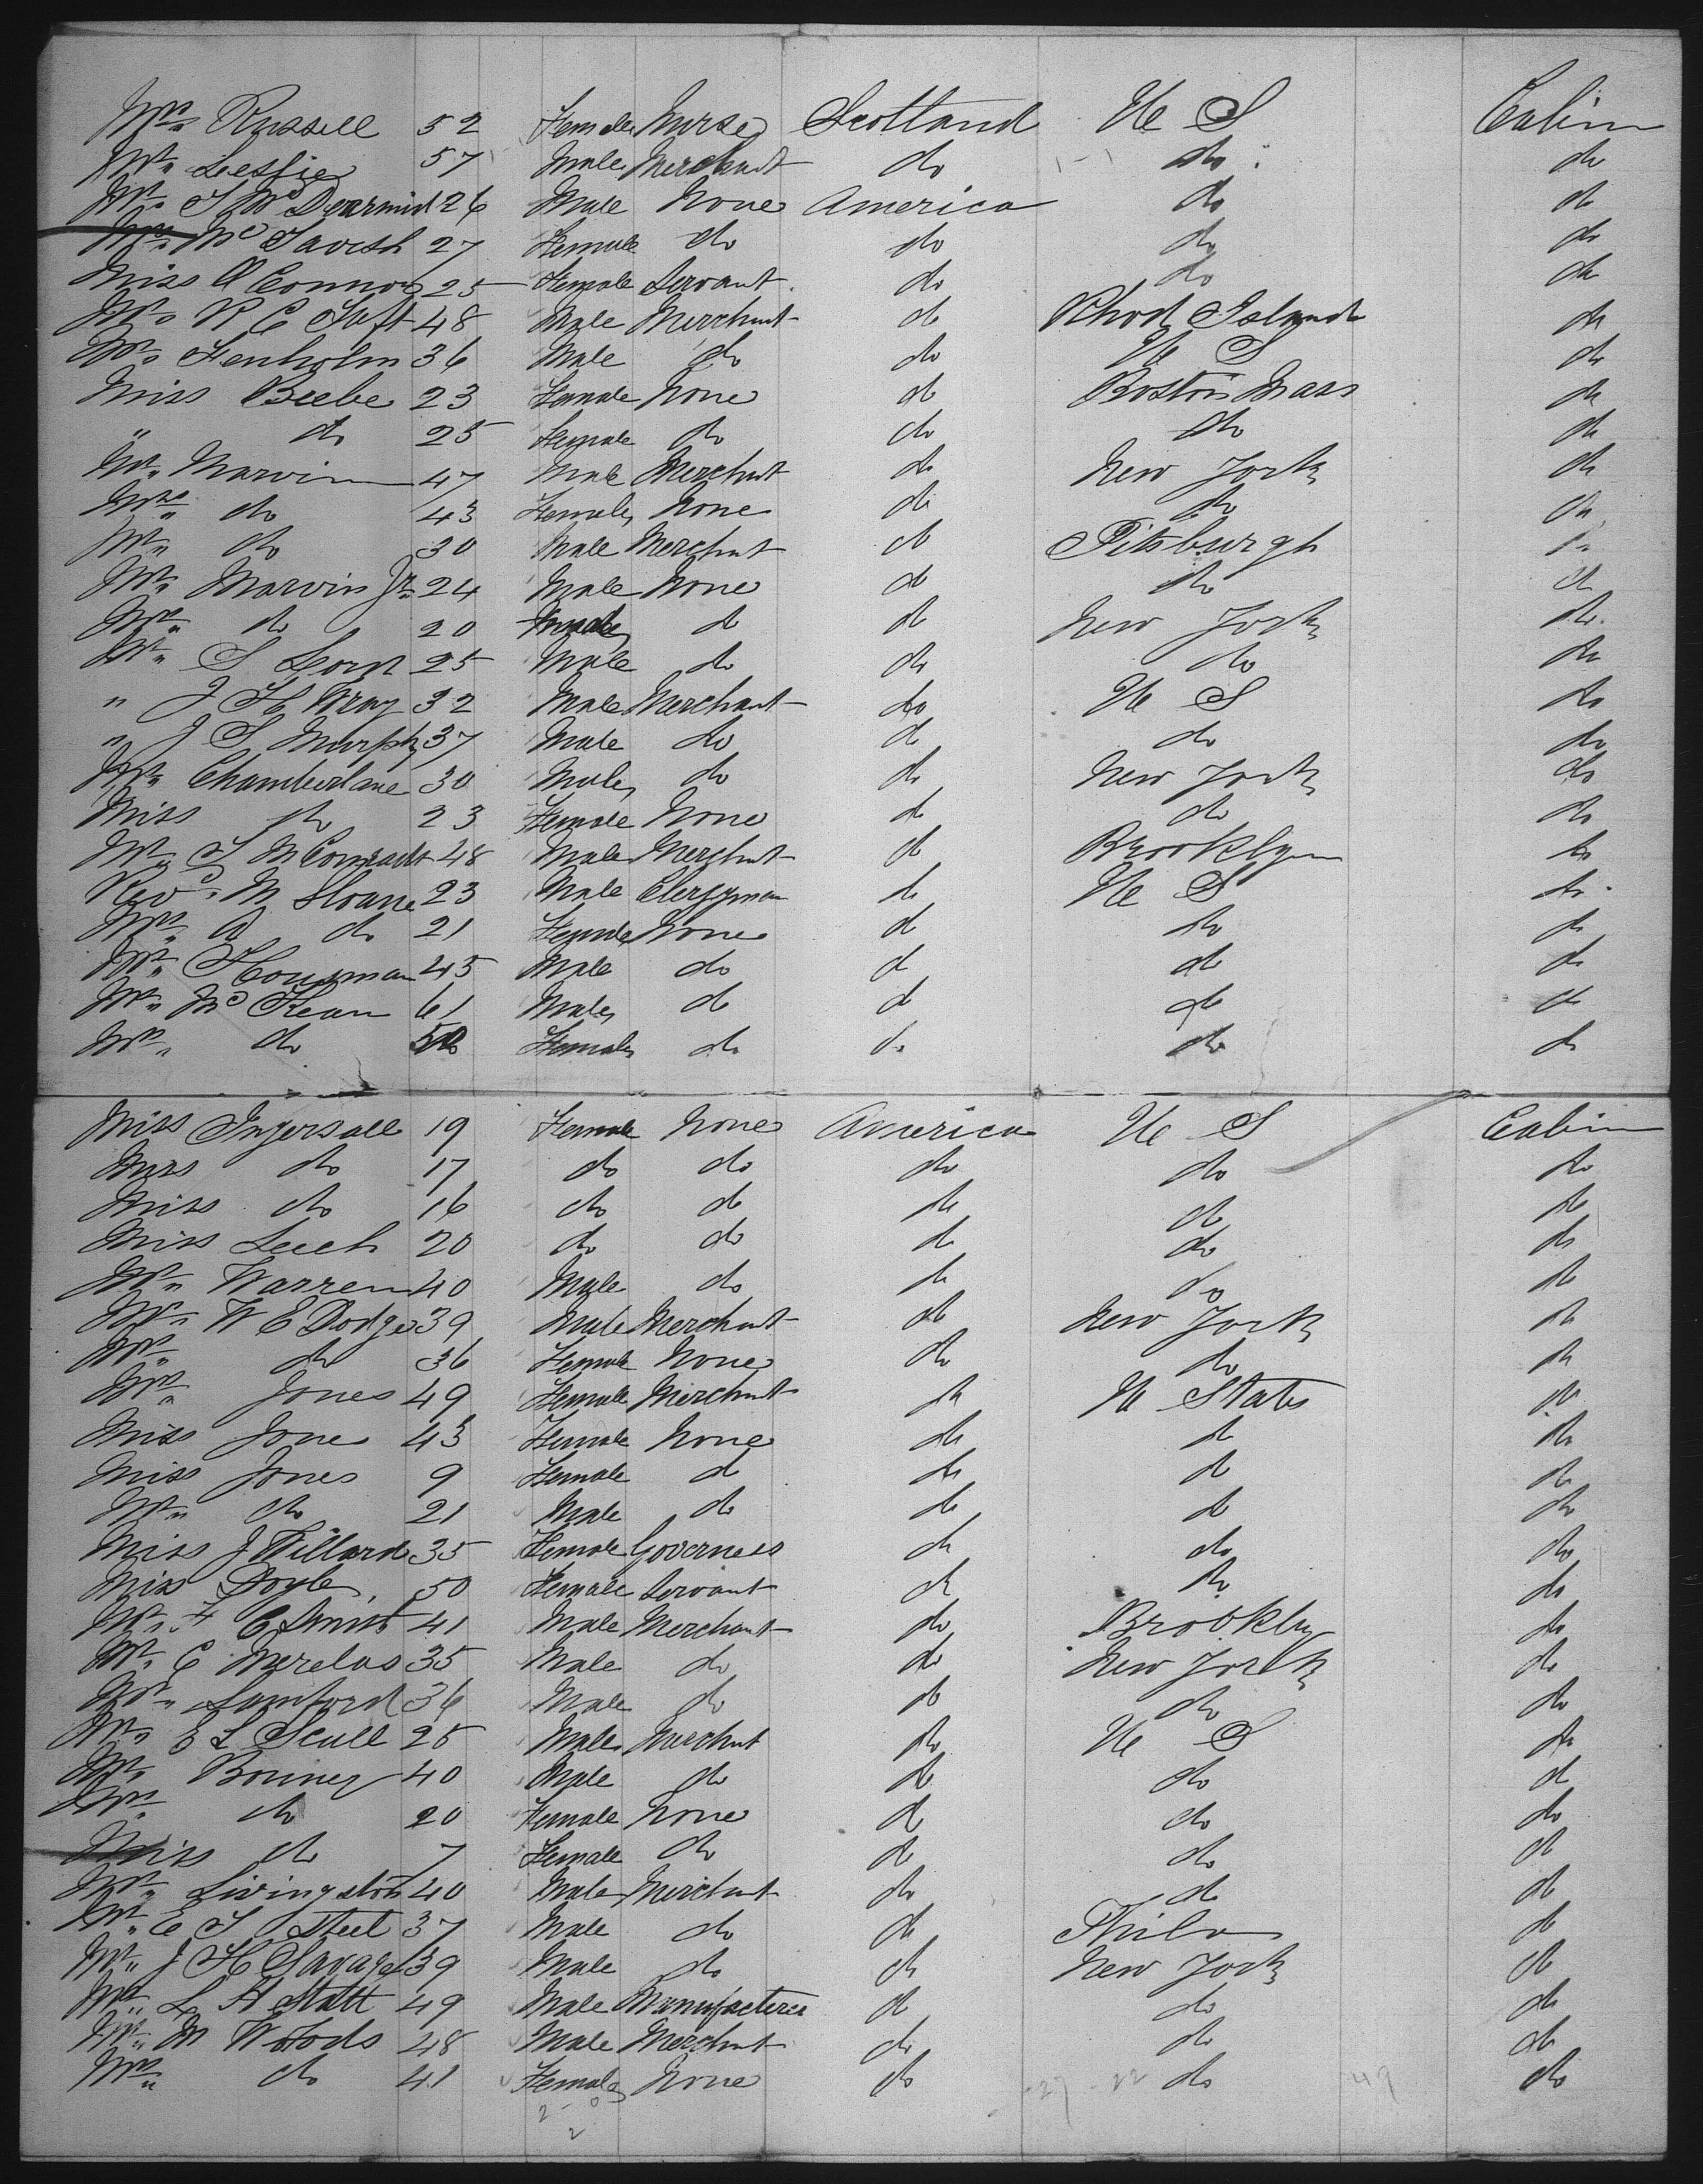 Mrs Russell 52 Female Nurse Scotland U S Cabin
Mr Leslie 57 Male Merchant do do do
Mr S McDearmid 26 Male None America do do
Mrs McTavish 27 Female do do do do
Miss O Connor 25 Female Servant do do do
Mr R C Taft 48 Male Merchant do Rhod Island do
Mr Fenholm 36 Male do do U S do
Miss Beebe 23 Female None do Boston Mass do
" do 25 Female do do do do
Mr Marvin 47 Male Merchant do New York do
Mrs do 43 Female None do do do
Mr do 30 Male Merchant do Pitsburgh do
Mr Marvin Jr 24 Male None do do do
Mrs do 20 Female do do New York do
Mr S Lord 25 Male do do do do
" J H Wray 32 Male Merchant do U S do
" J S Murphy 37 Male do do do do
Mr Chamberlane 30 Male do do New York do
Miss do 23 Female None do do do
Mr S McComradt 48 Male Merchant do Brooklyn do
Revd M Sloane 23 Male Clergyman do U S do
Mrs A do 21 Female None do do do
Mr Housman 45 Male do do do do
Mr McKean 61 Male do do do do
Mrs do 50 Female do do do do
Miss Ingersoll 19 Female None America U S Cabin
Miss do 17 do do do do do
Miss do 16 do do do do do
Miss Leech 20 do do do do do
Mr Warren 40 Male do do do do
Mr W E Dodge 39 Male Merchant do New York do
Mrs do 36 Female None do do do
Mrs Jones 49 Female Merchant do U States do
Miss Jones 43 Female None do do do
Miss Jones 9 Female do do do do
Mr do 21 Male do do do do
Miss J Willard 35 Female Governess do do do
Miss Doyle 50 Female Servant do do do
Mr F C Smith 41 Male Merchant do Brooklyn do
Mr C Merelas 35 Male do do New York do
Mr Samford 36 Male do do do do
Mr E L Scull 25 Male Merchant do U S do
Mr Bonner 40 Male do do do do
Mrs do 20 Female None do do do
Miss do 7 Female do do do do
Mr Livingston 40 Male Merchant do do do
Mr E S Steel 37 Male do do Phila do
Mr J H Savage 39 Male do do New York do
Mr L H Statt 49 Male Manufacturer do do do
Mr M Woods 48 Male Merchant do do do
Mrs do 41 Female None do do do